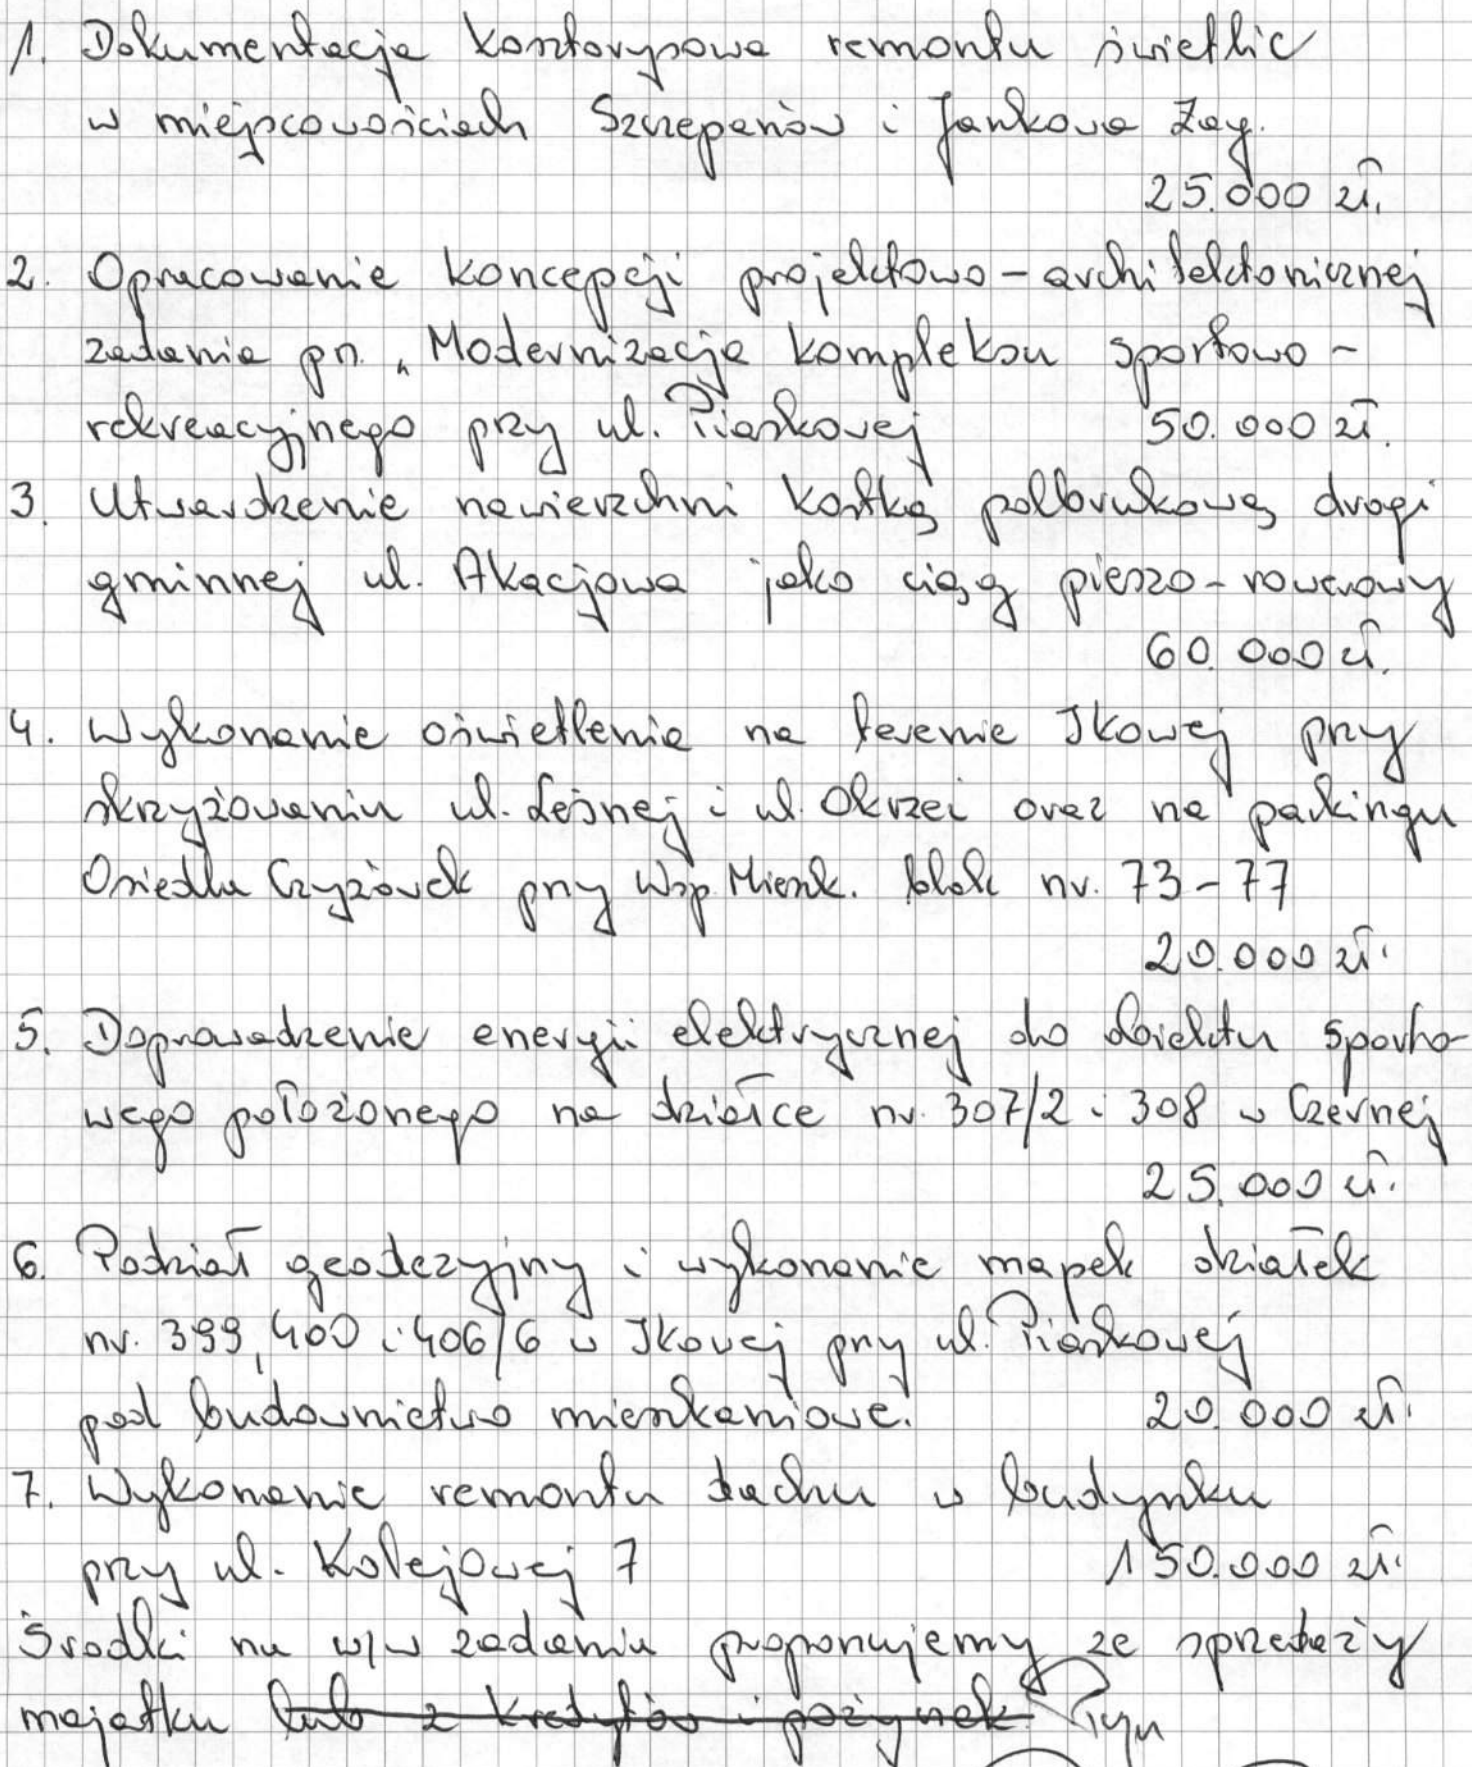 1. Dokumentacja kosztorysowa remontu świetlic
w miejscowościach Szczepanów i Jankowa Żag.
25.000 zł.
2. Opracowanie koncepcji projektowo - architektonicznej
zadania pn. „Modernizacja kompleksu sportowo -
rekreacyjnego przy ul. Piaskowej 50.000 zł.
3. Utwardzenie nawierzchni kostką polbrukową drogi
gminnej ul. Akacjowa jako ciąg pieszo-rowerowy
60.000 zł.
4. Wykonanie oświetlenia na terenie Iłowej przy
skrzyżowaniu ul. Leśnej i ul. Okrzei oraz na parkingu
Osiedla Czyżówek przy Wsp. Mieszk. blok nr. 73-77
20.000 zł.
5. Doprowadzenie energii elektrycznej do obiektu sporto-
wego położonego na działce nr. 307/2 i 308 w Czernej
25.000 zł.
6. Podział geodezyjny i wykonanie mapek działek
nr. 399, 400 i 406/6 w Iłowej przy ul. Piaskowej
pod budownictwo mieszkaniowe. 20.000 zł.
7. Wykonanie remontu dachu w budynku
przy ul. Kolejowej 7 150.000 zł.
Środki na w/w zadania proponujemy ze sprzedaży
majątku lub z kredytów i pożyczek